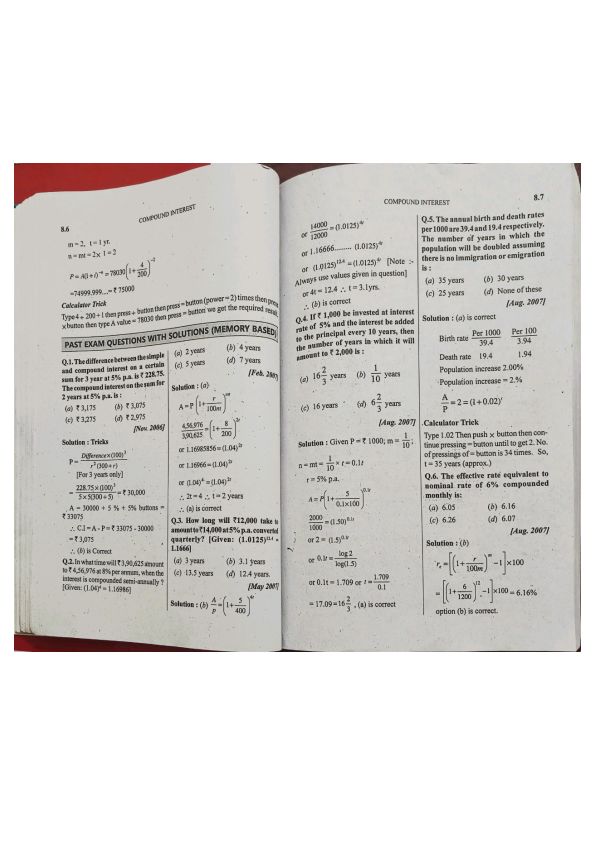 8.6
COMPOUND INTEREST
m = 2, t = 1 yr.
n = mt = 2 × 1 = 2
P = A(1 + i)⁻ⁿ = 78030(1 + 4/200)⁻²
=74999.999....= ₹ 75000
Calculator Trick
Type 4 ÷ 200 + 1 then press ÷ button then press = button (power = 2) times then press
× button then type A value = 78030 then press = button we got the required result.
PAST EXAM QUESTIONS WITH SOLUTIONS (MEMORY BASED)
Q.1. The difference between the simple
and compound interest on a certain
sum for 3 year at 5% p.a. is ₹ 228.75.
The compound interest on the sum for
2 years at 5% p.a. is :
(a) ₹ 3,175 (b) ₹ 3,075
(c) ₹ 3,275 (d) ₹ 2,975
[Nov. 2006]
Solution : Tricks
P = Difference×(100)³ / r²(300+r)
[For 3 years only]
= 228.75×(100)³ / 5×5(300+5) = ₹ 30,000
A = 30000 + 5 % + 5% buttons =
₹ 33075
∴ C.I = A - P = ₹ 33075 - 30000
= ₹ 3,075
∴ (b) is Correct
Q.2. In what time will ₹3,90,625 amount
to ₹ 4,56,976 at 8% per annum, when the
interest is compounded semi-annually ?
[Given: (1.04)⁴ = 1.16986]
(a) 2 years (b) 4 years
(c) 5 years (d) 7 years
[Feb. 2007]
Solution : (a)
A = P(1 + r/100m)ᵐᵗ
4,56,976/3,90,625 = (1 + 8/200)²ᵗ
or 1.16985856 = (1.04)²ᵗ
or 1.16966 = (1.04)²ᵗ
or (1.04)⁴ = (1.04)²ᵗ
∴ 2t = 4 ∴ t = 2 years
∴ (a) is correct
Q.3. How long will ₹12,000 take to
amount to ₹14,000 at 5% p.a. converted
quarterly? [Given: (1.0125)¹²·⁴ =
1.1666]
(a) 3 years (b) 3.1 years
(c) 13.5 years (d) 12.4 years.
[May 2007]
Solution : (b) A/P = (1 + 5/400)⁴ᵗ
COMPOUND INTEREST
8.7
or 14000/12000 = (1.0125)⁴ᵗ
or 1.16666......... (1.0125)⁴ᵗ
or (1.0125)¹²·⁴ = (1.0125)⁴ᵗ [Note :-
Always use values given in question]
or 4t = 12.4 ∴ t = 3.1yrs.
∴ (b) is correct
Q.4. If ₹ 1,000 be invested at interest
rate of 5% and the interest be added
to the principal every 10 years, then
the number of years in which it will
amount to ₹ 2,000 is :
(a) 16 2/3 years (b) 1/10 years
(c) 16 years (d) 6 2/3 years
[Aug. 2007]
Solution : Given P = ₹ 1000; m = 1/10 ;
n = mt = 1/10 × t = 0.1t
r = 5% p.a.
A = P(1 + 5/0.1×100)⁰·¹ᵗ
2000/1000 = (1.50)⁰·¹ᵗ
or 2 = (1.5)⁰·¹ᵗ
or 0.1t = log 2/log(1.5)
or 0.1t = 1.709 or t = 1.709/0.1
= 17.09 = 16 2/3 , (a) is correct
Q.5. The annual birth and death rates
per 1000 are 39.4 and 19.4 respectively.
The number of years in which the
population will be doubled assuming
there is no immigration or emigration
is :
(a) 35 years (b) 30 years
(c) 25 years (d) None of these
[Aug. 2007]
Solution : (a) is correct
Per 1000 Per 100
Birth rate 39.4 3.94
Death rate 19.4 1.94
Population increase 2.00%
Population increase = 2.%
A/P = 2 = (1 + 0.02)ᵗ
Calculator Trick
Type 1.02 Then push × button then con-
tinue pressing = button until to get 2. No.
of pressings of = button is 34 times. So,
t = 35 years (approx.)
Q.6. The effective rate equivalent to
nominal rate of 6% compounded
monthly is:
(a) 6.05 (b) 6.16
(c) 6.26 (d) 6.07
[Aug. 2007]
Solution : (b)
rₑ = [(1 + r/100m)ᵐ − 1] × 100
= [(1 + 6/1200)¹² − 1] × 100 = 6.16%
option (b) is correct.